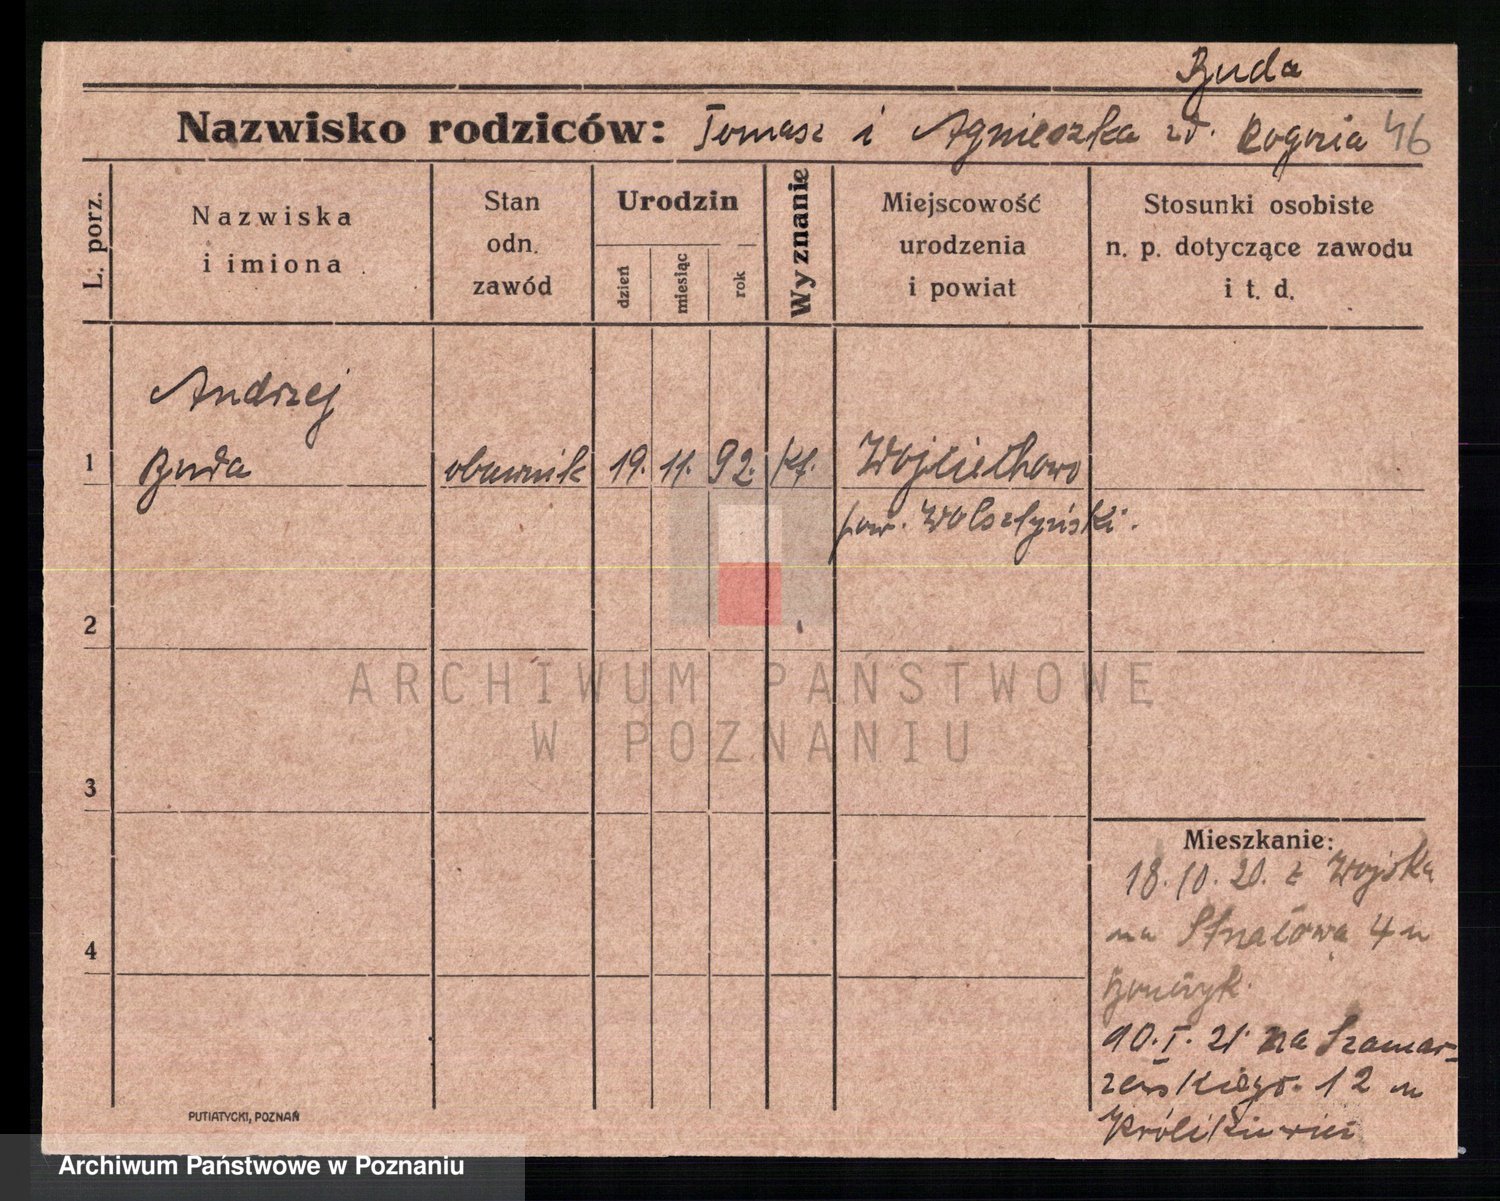 Buda
Nazwisko rodziców: Tomasz i Agnieszka zd. Rogozia 46
L. porz.
Nazwiska
i imiona
Stan
odn.
zawód
Urodzin
dzień
miesiąc
rok
Wyznanie
Miejscowość
urodzenia
i powiat
Stosunki osobiste
n. p. dotyczące zawodu
i t. d.
Andrzej
1 Buda obuwnik 19. 11. 92. kt. Wojciechowo
pow. Wolsztyński.
2
3
4
ARCHIWUM PAŃSTWOWE
W POZNANIU
Mieszkanie:
18.10.20. z Wojska
na 4 u
10.I.21 na Szamar-
zewskiego 12 u
PUTIATYCKI, POZNAŃ
Archiwum Państwowe w Poznaniu